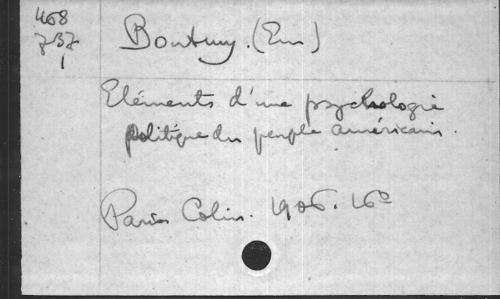 468
737
1
Boutmy. (Em)
Eléments d'une psychologie
politique du peuple américain.
Paris Colin. 1906. 16º